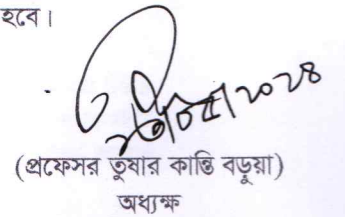 হবে।
২০২৪
(প্রফেসর তুষার কান্তি বড়ুয়া)
অধ্যক্ষ